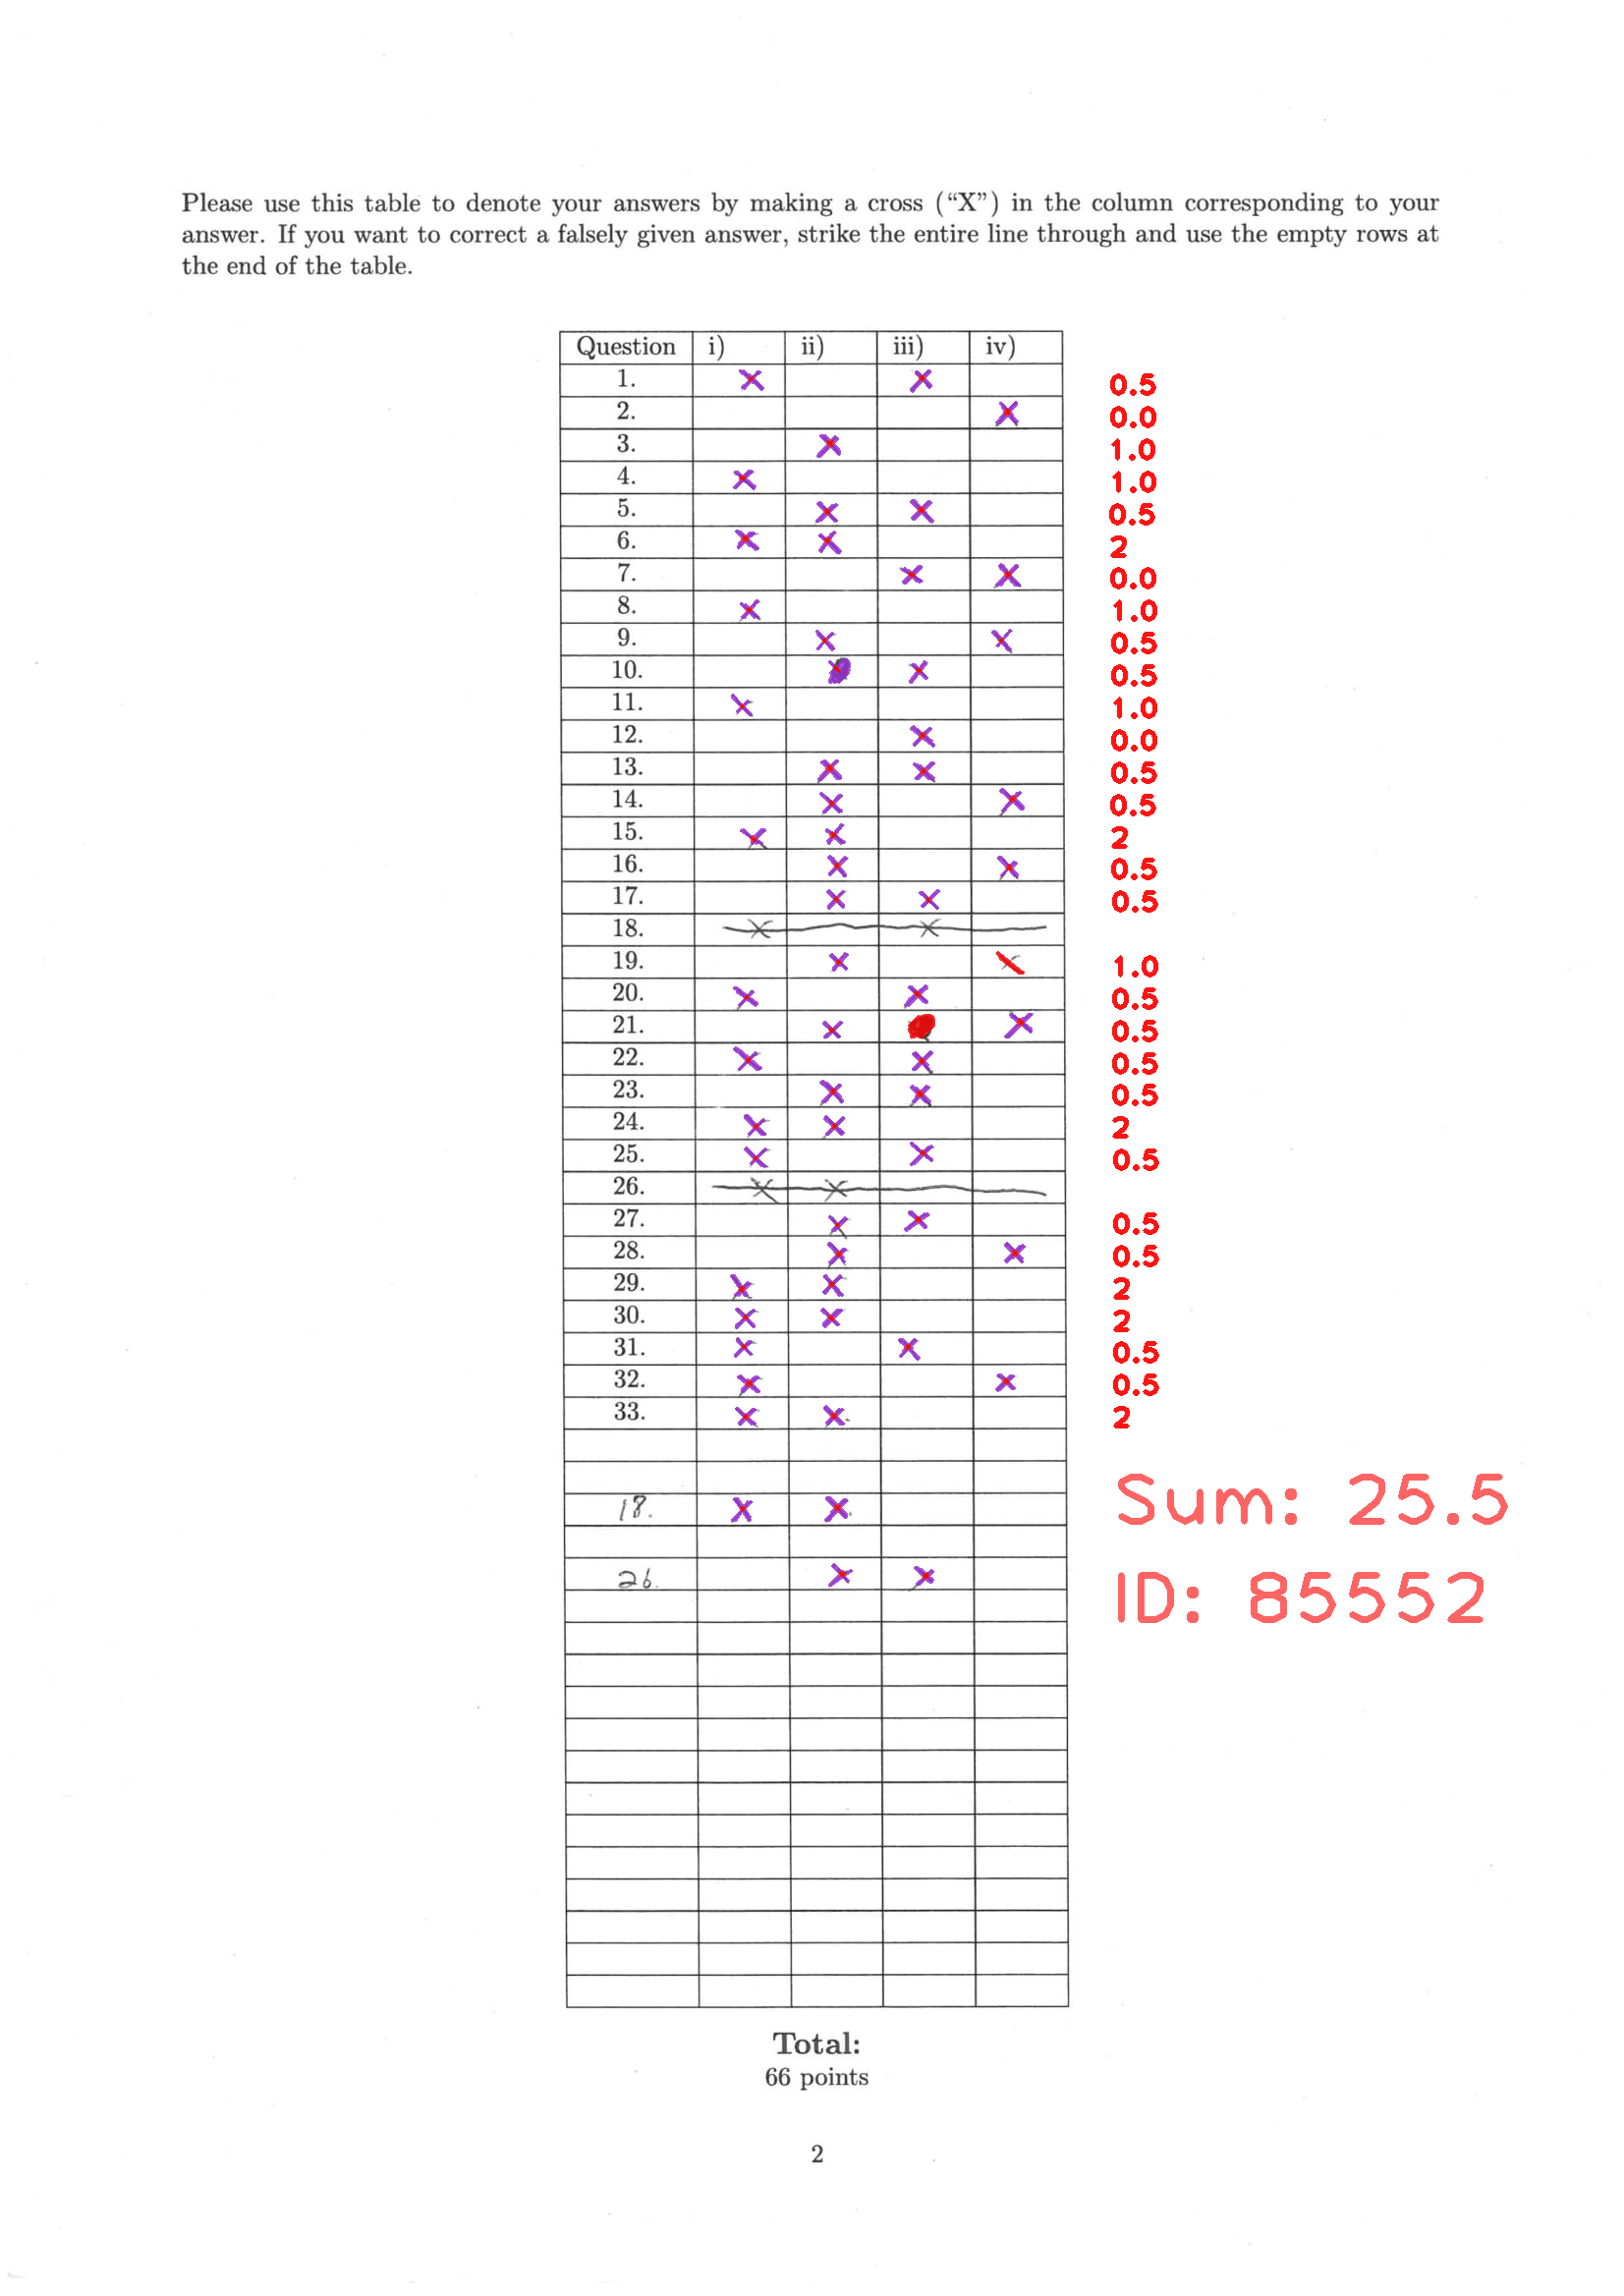 Please use this table to denote your answers by making a cross (“X”) in the column corresponding to your
answer. If you want to correct a falsely given answer, strike the entire line through and use the empty rows at
the end of the table.
Question i) ii) iii) iv)
1. X X 0.5
2. X 0.0
3. X 1.0
4. X 1.0
5. X X 0.5
6. X X 2
7. X X 0.0
8. X 1.0
9. X X 0.5
10. X 0.5
11. X 1.0
12. X 0.0
13. X X 0.5
14. X X 0.5
15. X X 2
16. X X 0.5
17. X X 0.5
18. X X
19. X X 1.0
20. X X 0.5
21. X X 0.5
22. X X 0.5
23. X X 0.5
24. X X 2
25. X X 0.5
26. X X
27. X X 0.5
28. X X 0.5
29. X X 2
30. X X 2
31. X X 0.5
32. X X 0.5
33. X X 2
18. X X
Sum: 25.5
26. X X
ID: 85552
Total:
66 points
2